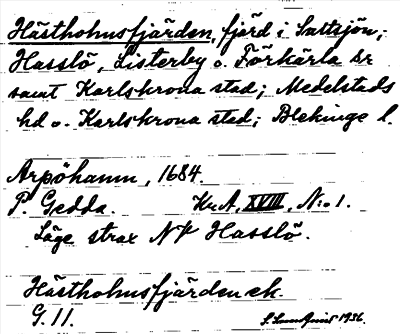 Hästholmsfjärden, fjärd i Saltsjön,
Hasslö, Listerby o. Förkärla sr
samt Karlskrona stad; Medelstads
hd o. Karlskrona stad; Blekinge l.
Arpöhamn, 1684.
P. Gedda. Kr.A, XVIII, N:o 1.
Läge strax NV Hasslö.
Hästholmsfjärden ek.
G. 11. 1936.